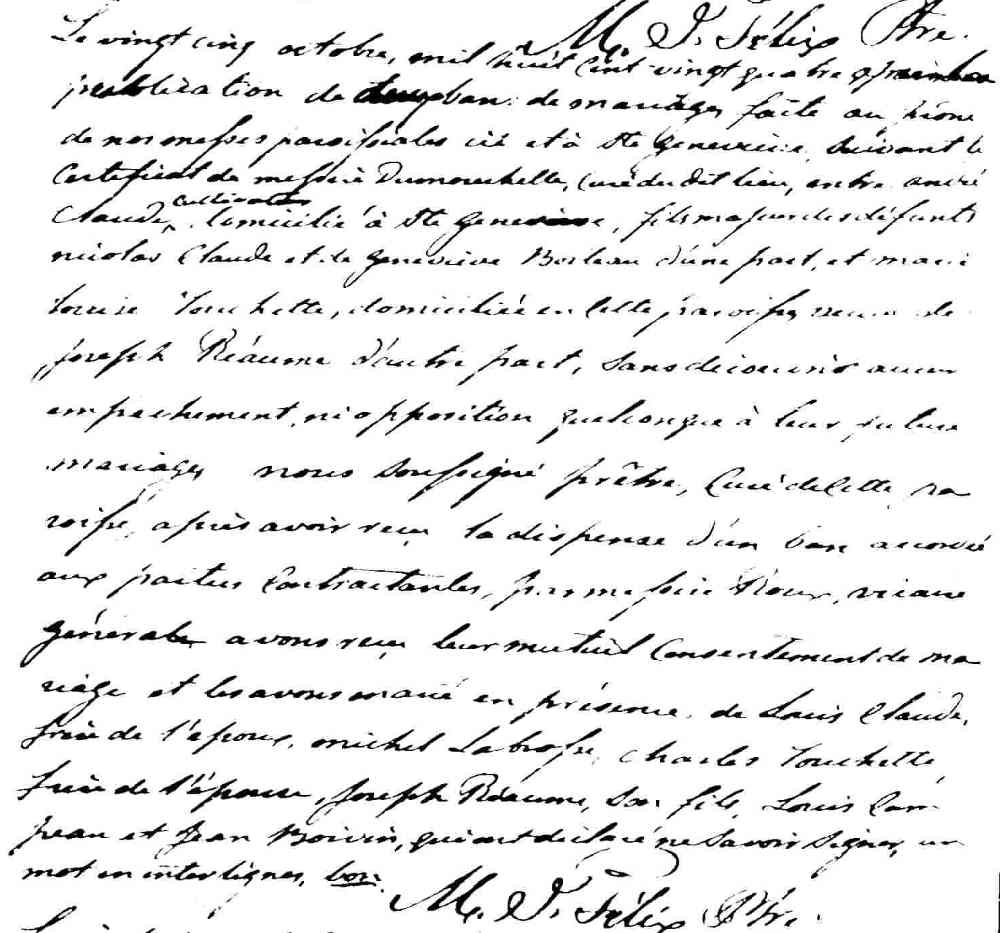 M. J. Félix Ptre.
Le vingt cinq octobre, mil huit cent vingt quatre après la
publication de deux bans de mariage, faite au prône
de nos messes paroissiales ici et à Ste Geneviève, suivant le
Certificat de messire Dumouchelle, Curé du dit lieu, entre andré
cultivateur
Claude, domicilié à Ste Geneviève, fils majeur des défunts
nicolas Claude et de Geneviève Boileau d'une part, et marie
Louise Touchette, domiciliée en cette paroisse, veuve de
Joseph Réaume d'autre part, sans découvrir aucun
empêchement, ni opposition quelconque à leur future
mariage, nous soussigné prêtre, Curé de cette pa
roisse, après avoir reçu la dispense d'un ban accordé
aux parties Contractantes, par messire Roux, vicaire
général, avons reçu leur mutuel Consentement de ma
riage et les avons marié en présence, de Louis Claude,
frère de l'époux, michel Labrosse, Charles Touchette,
frère de l'épouse, Joseph Réaume, son fils, Louis Cam
peau et Jean Boivin, qui ont déclaré ne Savoir Signer, un
mot en interligne, bon.
M. J. Félix Ptre.